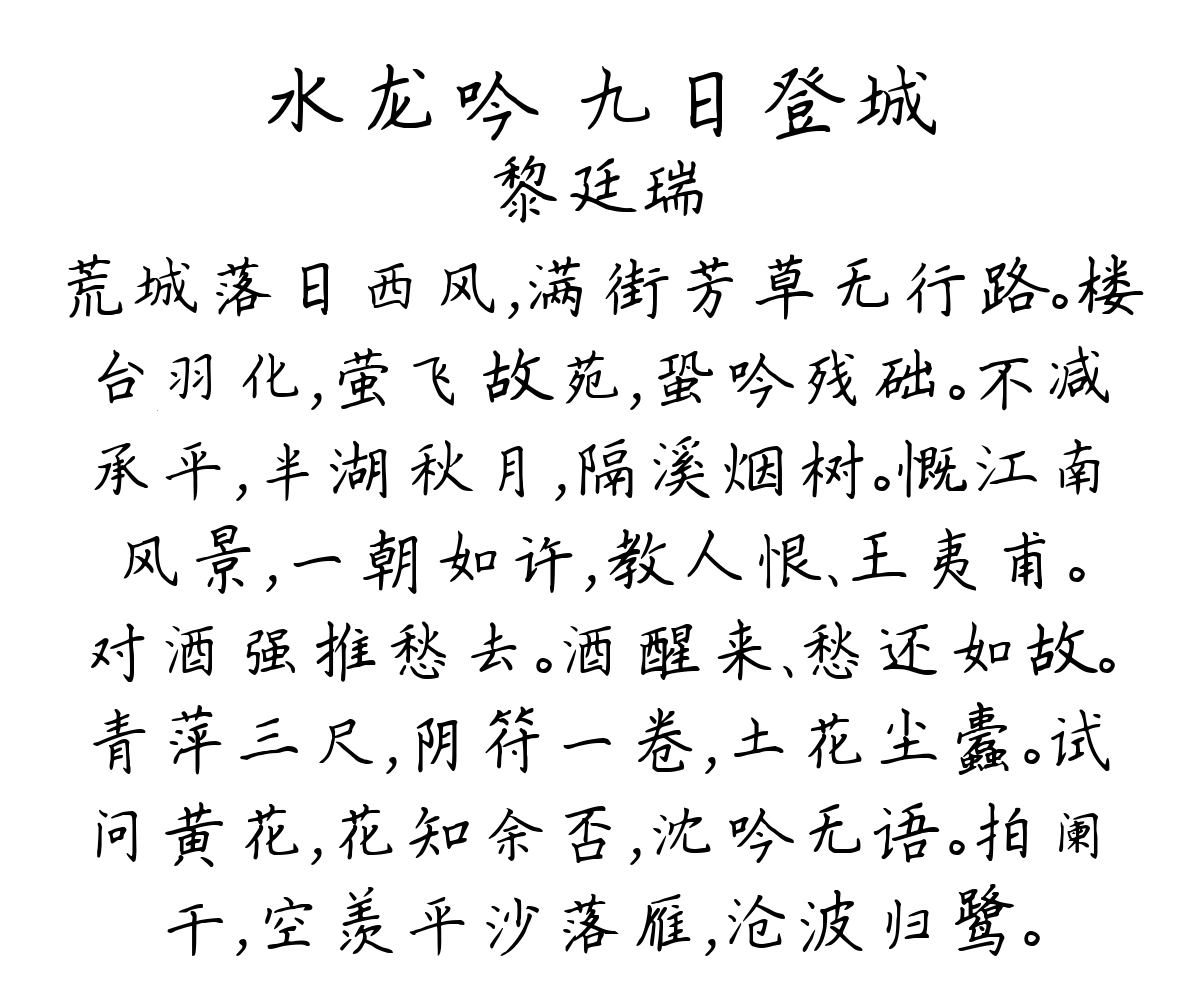 水龙吟 九日登城
黎廷瑞
荒城落日西风,满街芳草无行路。楼
台羽化,萤飞故苑,蛩吟残础。不减
承平,半湖秋月,隔溪烟树。慨江南
风景,一朝如许,教人恨、王夷甫。
对酒强推愁去。酒醒来、愁还如故。
青萍三尺,阴符一卷,土花尘蠹。试
问黄花,花知余否,沈吟无语。拍阑
干,空羡平沙落雁,沧波归鹭。